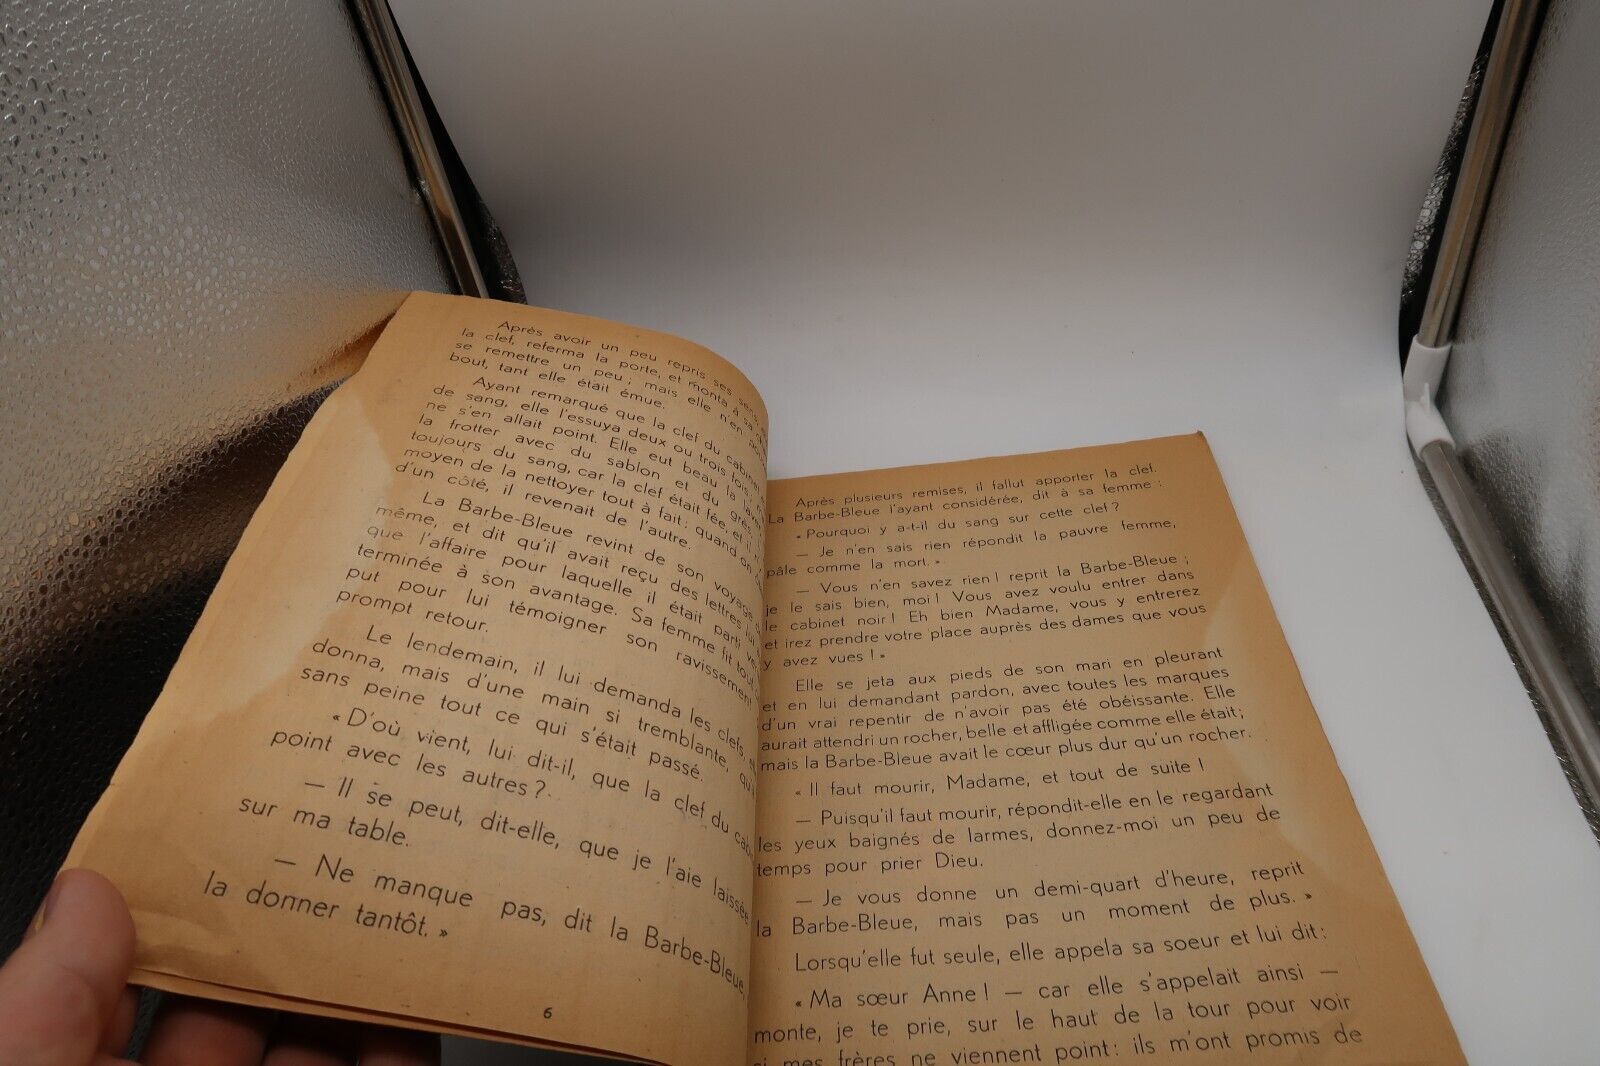 Après avoir un peu repris ses
la clef, referma la porte, et monta à sa
se remettre un peu; mais elle n'en
bout, tant elle était émue.
Ayant remarqué que la clef du cabinet
de sang, elle l'essuya deux ou trois fois,
ne s'en allait point. Elle eut beau la
la frotter avec du sablon et du grès,
toujours du sang, car la clef était fée, et il n'y
moyen de la nettoyer tout à fait: quand on
d'un côté, il revenait de l'autre.
La Barbe-Bleue revint de son voyage
même, et dit qu'il avait reçu des lettres
que l'affaire pour laquelle il était parti
terminée à son avantage. Sa femme fit tout
put pour lui témoigner son ravissement
prompt retour.
Le lendemain, il lui demanda les clefs,
donna, mais d'une main si tremblante,
sans peine tout ce qui s'était passé.
« D'où vient, lui dit-il, que la clef du
point avec les autres?
— Il se peut, dit-elle, que je l'aie laissée
sur ma table.
— Ne manque pas, dit la Barbe-Bleue,
la donner tantôt. »
6
Après plusieurs remises, il fallut apporter la clef.
La Barbe-Bleue l'ayant considérée, dit à sa femme :
« Pourquoi y a-t-il du sang sur cette clef?
— Je n'en sais rien répondit la pauvre femme,
pâle comme la mort. »
— Vous n'en savez rien! reprit la Barbe-Bleue ;
je le sais bien, moi! Vous avez voulu entrer dans
le cabinet noir! Eh bien Madame, vous y entrerez
et irez prendre votre place auprès des dames que vous
y avez vues! »
Elle se jeta aux pieds de son mari en pleurant
et en lui demandant pardon, avec toutes les marques
d'un vrai repentir de n'avoir pas été obéissante. Elle
aurait attendri un rocher, belle et affligée comme elle était;
mais la Barbe-Bleue avait le cœur plus dur qu'un rocher.
« Il faut mourir, Madame, et tout de suite !
— Puisqu'il faut mourir, répondit-elle en le regardant
les yeux baignés de larmes, donnez-moi un peu de
temps pour prier Dieu.
— Je vous donne un demi-quart d'heure, reprit
la Barbe-Bleue, mais pas un moment de plus. »
Lorsqu'elle fut seule, elle appela sa soeur et lui dit:
« Ma sœur Anne! — car elle s'appelait ainsi —
monte, je te prie, sur le haut de la tour pour voir
si mes frères ne viennent point: ils m'ont promis de